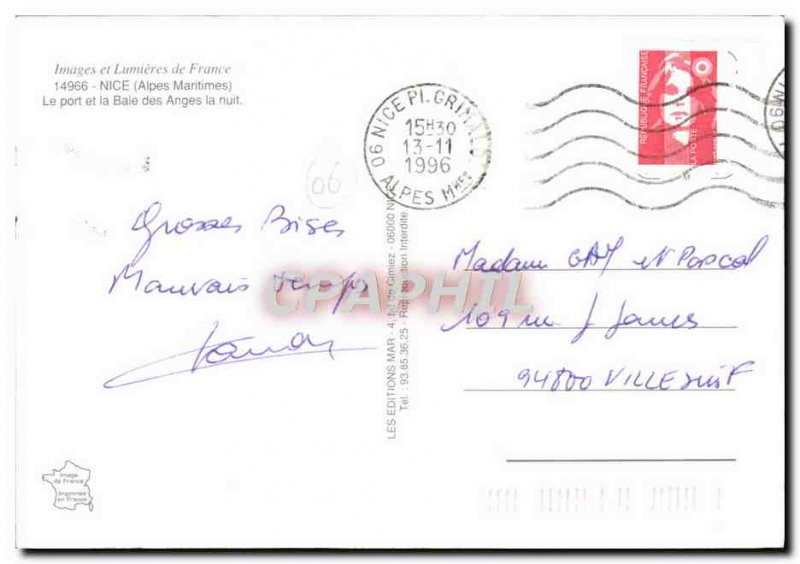 Images et Lumières de France
14966 - NICE (Alpes Maritimes)
Le port et la Baie des Anges la nuit.
06 NICE Pl. GRIMA
15H30
13-11
1996
ALPES Mmes
REPUBLIQUE FRANÇAISE
LA POSTE
06
Grosses Bises
Mauvais temps
Madame GAY et Pascal
109 rue J Jaurès
94800 VILLEJUIF
CPAPHIL
LES EDITIONS MAR - 4, bd de Cimiez - 06000 NI
Tel : 93.85.36.25 - Reproduction Interdite
Image
de France
Imprimée
en France